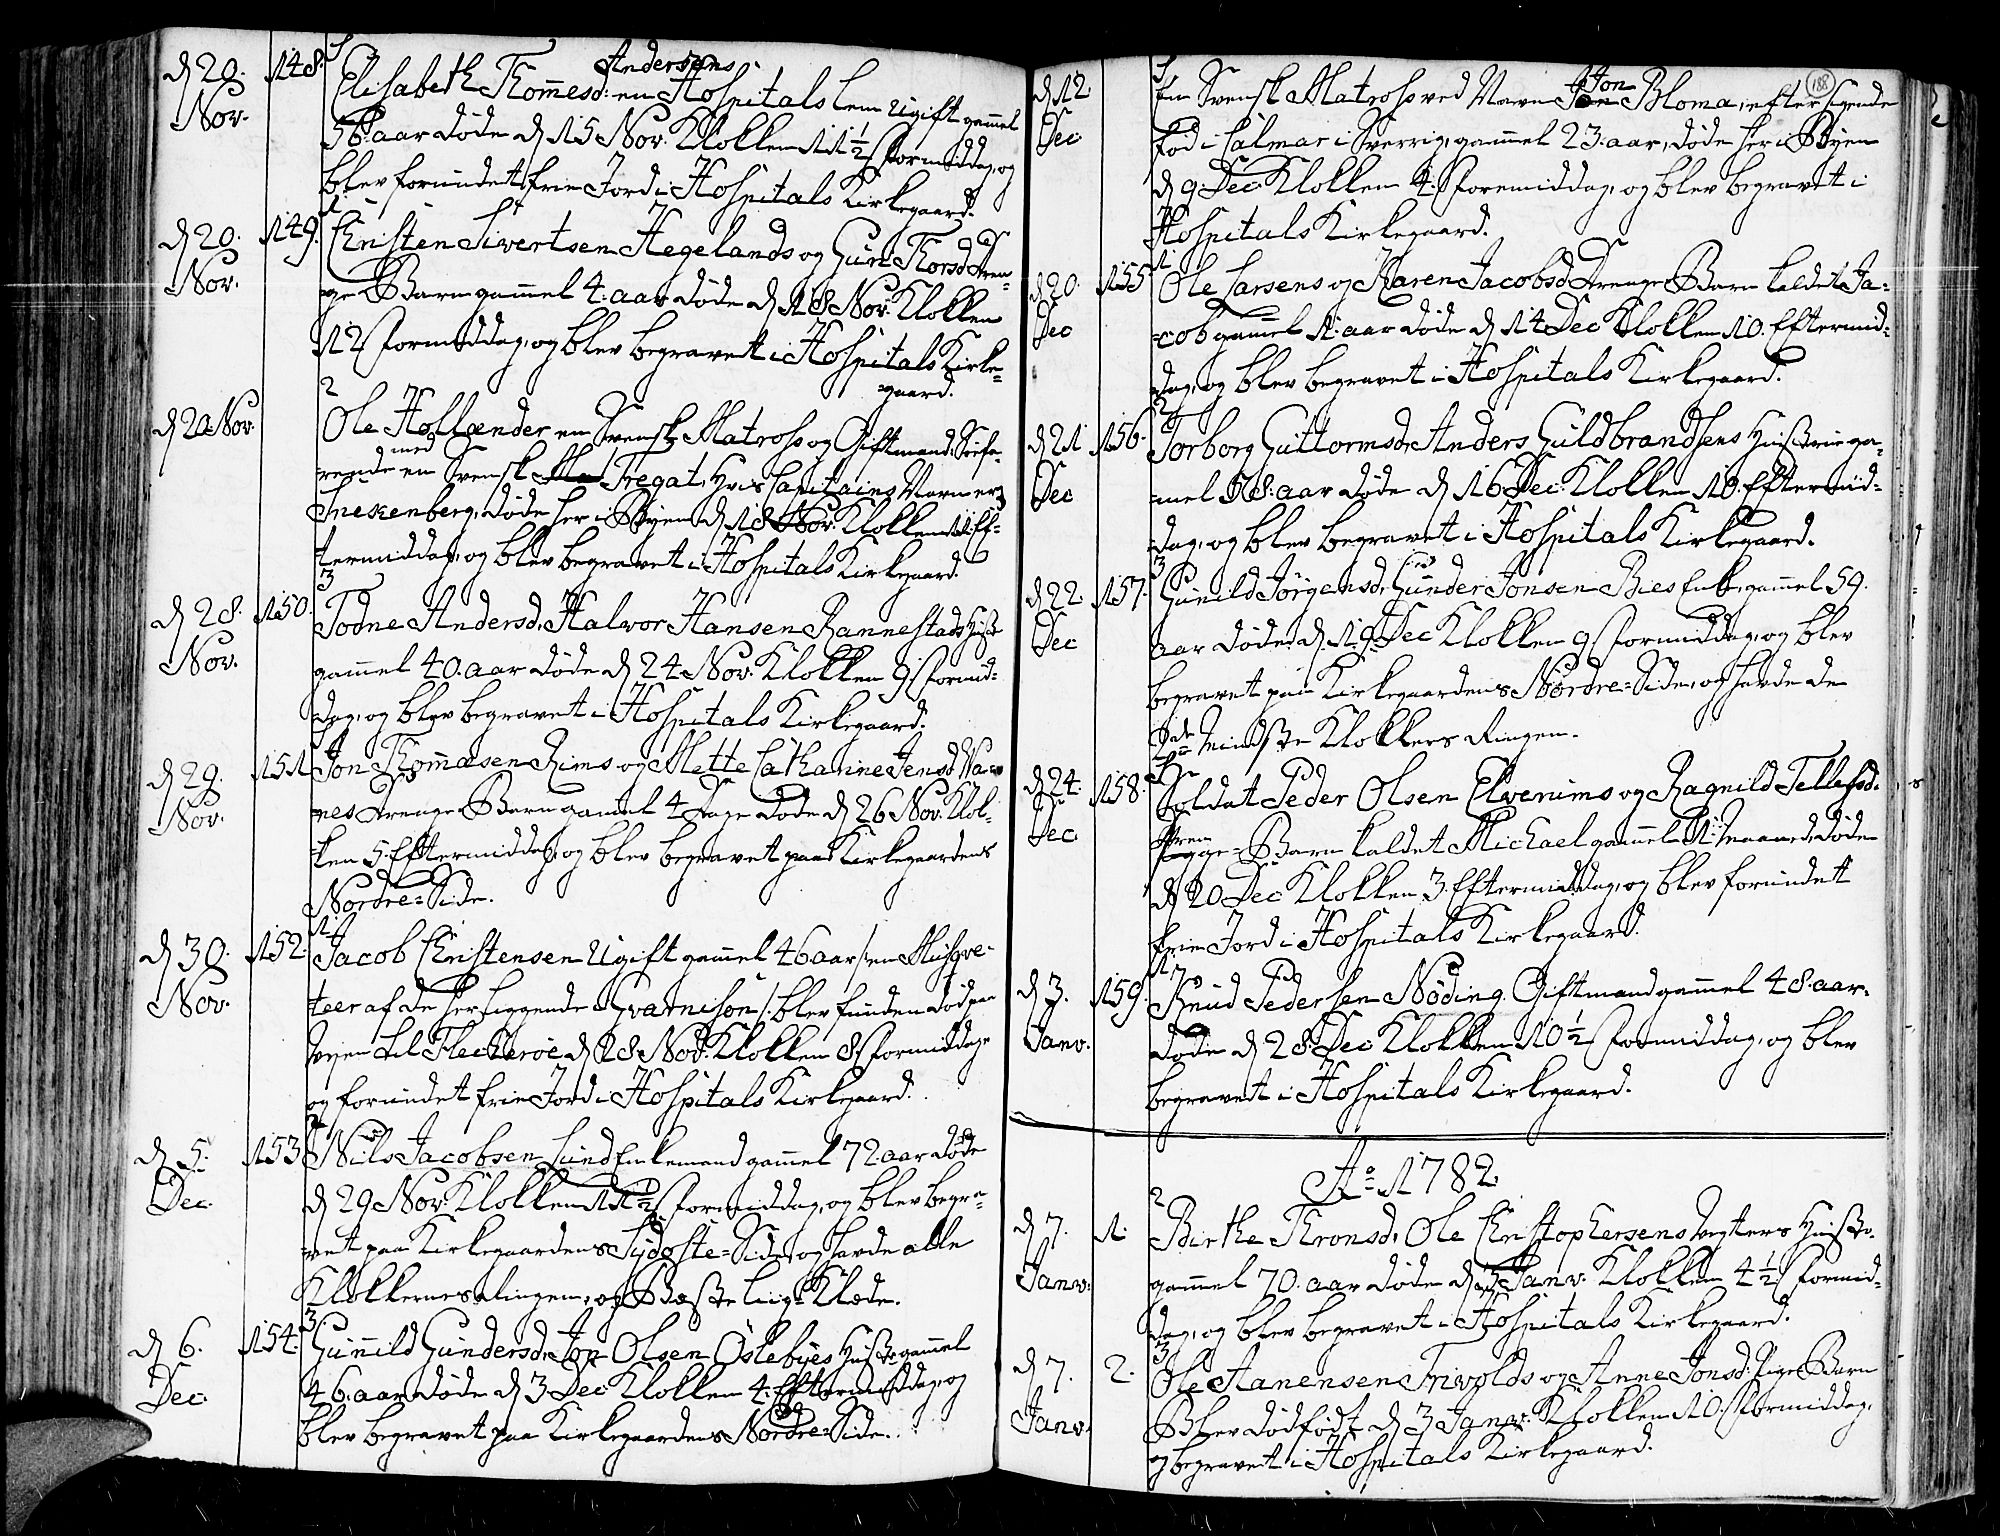 d 20. Nov. 148. Elisabeth Thomesd: en Andersens Hospitals Lem Ugift gamel
56 aar døde d 15 Nov. Klokken 11½ Formiddag, og
blev forundet frie Jord i Hospitals Kirkegaard.
d 20. Nov. 149. Christen Sivertsen Hegelands og Guri Thorsd Dren=
ge Barn gamel 4. aar døde d 18 Nov. Klokken
12 Formiddag, og blev begravet i Hospitals Kirke=
gaard.
2
d 20 Nov. Ole Hollænder en Svensk Matros og Giftmand, Seifa=
rende med en Svensk Fregat, hvis Capitains Navn er
døde her i Byen d 18 Nov. Klokken 11 Ef=
termiddag, og blev begravet i Hospitals Kirkegaard.
3
d 28. Nov. 150. Todne Andersd. Halvor Hansen Rannestads Hustr
gamel 40. aar døde d 24 Nov. Klokken 9 Formid=
dag, og blev begravet i Hospitals Kirkegaard.
d 29. Nov. 151 Jon Thommæsen Rims og Mette Catharine Jensd
nes Drenge Barn gamel 4 Dage døde d 26 Nov. Klok=
ken 5. Eftermiddag, og blev begravet paa Kirkegaardens
Nordre=Side.
1
d 30. Nov. 152. Jacob Christensen Ugift gamel 46 aar /: en Musqve=
teer af de her liggende Gvarnison :/ blev funden død paa
veien til Flecherøe d 28 Nov. Klokken 8 Formiddag
og forundet frie Jord i Hospitals Kirkegaard.
d 5. Dec. 153 Niels Jacobsen Lund Enkemand gamel 72 aar døde
d 29 Nov. Klokken 11½ Formiddag, og blev begra=
vet paa Kirkegaardens Sydoste=Side, og havde alle
Klokkernes Ringen, og Beste Liig=Klæde.
3.
d 6. Dec. 154. Gunnild Gundersd. Jon Olsen Oslebyes Hustr gamel
46. aar døde d 3 Dec. Klokken 4. Eftermiddag, og
blev begravet paa Kirkegaardens Nordre=Side.
188
d 12. Dec. En Svensk Matros ved Navn Jon Bloma, efter sigende
fød i Calmar i Sverrig, gamel 23. aar, døde her i Byen
d 9 Dec. Klokken 4. Foremiddag, og blev begravet i
Hospitals Kirkegaard.
1
d 20. Dec 155 Ole Larsens og Karen Jacobsd Drenge Barn kaldet Ja=
cob gamel 1. aar døde d 14 Dec Klokken 10. Eftermid=
dag, og blev begravet i Hospitals Kirkegaard.
2
d 21 Dec 156. Torborg Guttormsd. Anders Guldbrandsens Hustrue ga=
mel 58. aar døde d 16 Dec: Klokken 10. Eftermid=
dag, og blev begravet i Hospitals Kirkegaard.
3
d 22. Dec 157. Gunild Jørgensd. Gunder Jonsen Bies Enke, gamel 59.
aar døde d 19 Dec Klokken 9 Formiddag, og blev
begravet paa Kirkegaardens Nordre=Side, og havde de
mindste Klokkers Ringen.
d 24. Dec. 158. Soldat Peder Olsen Elverums og Ragnild Tellefsd.
Drenge=Barn kaldet Michael gamel 1. Maaned, døde
d 20 Dec Klokken 3. Eftermiddag, og blev forundet
frie Jord i Hospitals Kirkegaard.
1
d 3. Janv. 159. Knud Pedersen Nøding. Giftmand gamel 48. aar.
døde d 28 Dec: Klokken 10½ Formiddag, og blev
begravet i Hospitals Kirkegaard.
Ao 1782.
2
d 7. Janv: 1. Birthe Thronsd, Ole Christophersens Hustr.
gamel 70. aar døde d Janv. Klokken 4½ Formid=
dag, og blev begravet i Hospitals Kirkegaard.
3
d 7. Janv. 2. Ole Aanensen Trivolds og Anne Jonsd: Pige Barn
Blev dødfødt d 3 Janv. Klokken 10. Formiddag,
og begravet i Hospitals Kirkegaard.